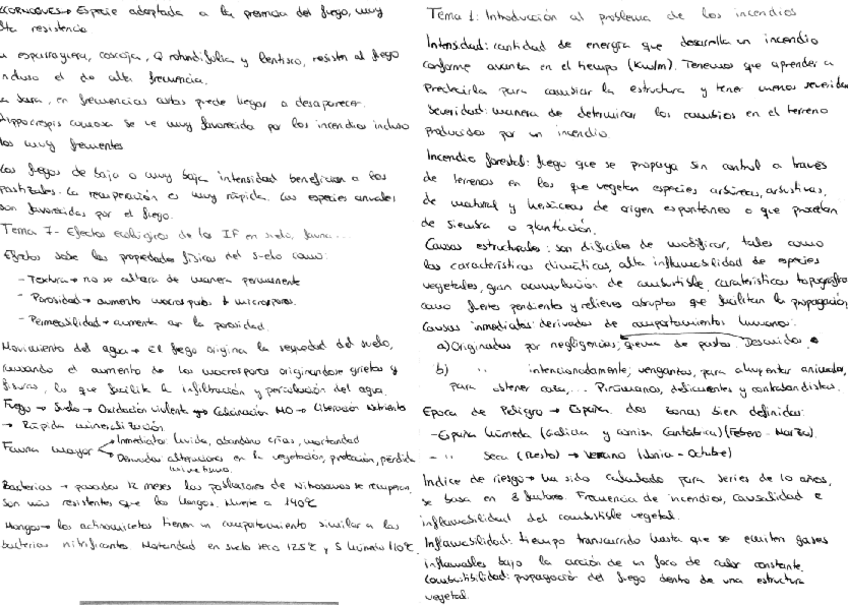 ALCORNOQUES → Especie adaptada a la presencia del fuego, muy
alta resistencia
La esparraguera, coscoja, Q rotundifolia y lentisco, resisten al fuego
incluso el de alta frecuencia.
La Jara, en frecuencias cortas puede llegar a desaparecer.
Hippocrepis comosa se ve muy favorecida por los incendios incluso
los muy frecuentes
Los fuegos de baja o muy baja intensidad benefician a los
pastizales. La recuperación es muy rápida. Las especies anuales
son favorecidas por el fuego.
Tema 7- Efectos ecológicos de los IF en suelo, fauna...
Efectos sobre las propiedades físicas del suelo como:
- Textura → no se altera de manera permanente
- Porosidad → aumento macroporos ↓ microporos.
- Permeabilidad → aumenta con la porosidad.
Movimiento del agua → El fuego origina la sequedad del suelo,
causando el aumento de los macroporos originandose grietas y
fisuras, lo que facilita la infiltración y percolación del agua.
Fuego → Suelo → Oxidación violenta → Calcinación MO → Liberación Nutrientes
→ Rápida mineralización.
Fauna mayor Inmediato: huida, abandono crías, mortandad
Derivados: alteraciones en la vegetación, protección, pérdida
Bacterias → pasados 12 meses las poblaciones de Nitrosomas se recuperan,
son más resistentes que los hongos. Muerte a 140ºC
Hongos → los actinomicetos tienen un comportamiento similar a las
bacterias nitrificantes. Mortandad en suelo seco 125ºC y S húmedo 110ºC.
Tema 1: Introducción al problema de los incendios
Intensidad: cantidad de energía que desarrolla un incendio
conforme avanza en el tiempo (Kw/m). Tenemos que aprender a
Predecirla para cambiar la estructura y tener menos severidad
Severidad: manera de determinar los cambios en el terreno
producidos por un incendio.
Incendio forestal: fuego que se propaga sin control a través
de terrenos en los que vegetan especies arbóreas, arbustivas,
de matorral y herbáceas de origen espontáneo o que procedan
de siembra o plantación.
Causas estructurales: son difíciles de modificar, tales como
las características climáticas, alta inflamabilidad de especies
vegetales, gran acumulación de combustible, características topográficas
como fuertes pendientes y relieves abruptos que facilitan la propagación.
Causas inmediatas: derivadas de comportamientos humanos:
a) Originadas por negligencias; quema de pastos. Descuidos
b) " intencionadamente; venganzas, para ahuyentar animales,
para obtener caza,... Pirómanos, delincuentes y contrabandistas.
Epoca de Peligro → España dos zonas bien definidas:
- España húmeda (Galicia y cornisa Cantábrica) (Febrero - Marzo).
- " Seca (Resto) → Verano (Junio - Octubre)
Indice de riesgo → ha sido calculado para series de 10 años,
se basa en 3 factores. Frecuencia de incendios, causalidad e
inflamabilidad del combustible vegetal.
Inflamabilidad: tiempo transcurrido hasta que se emiten gases
inflamables bajo la acción de un foco de calor constante.
Combustibilidad: propagación del fuego dentro de una estructura
vegetal.